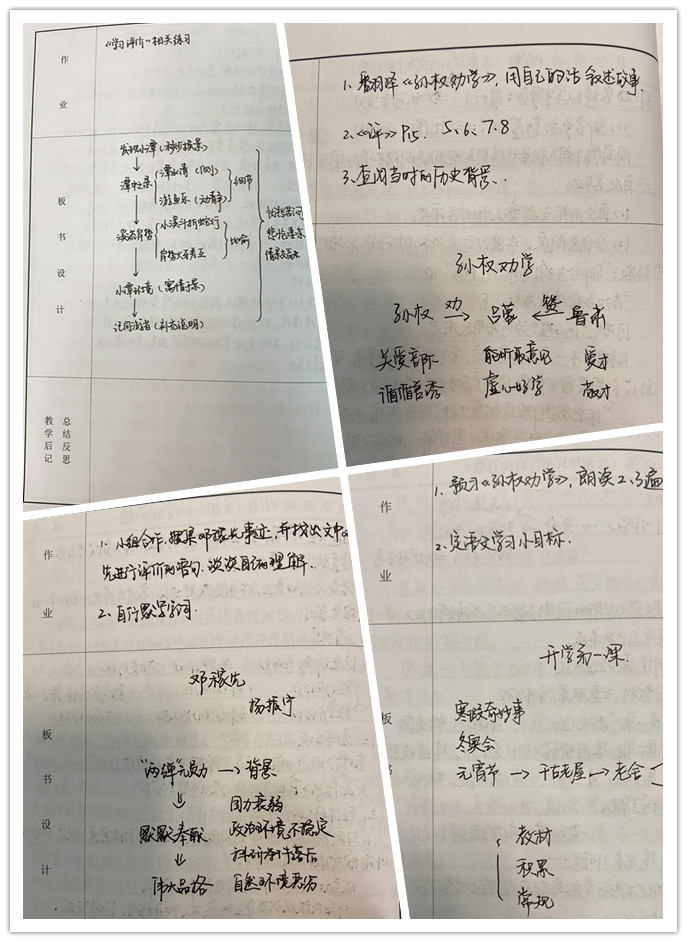 作业
《学习评价》相关练习
板书设计
发现小潭（移步换景）
潭中之景
潭水清（侧）
游鱼乐（动静）
细节
小溪斗折蛇行
岸势犬牙差互
比喻
小潭环境（寓情于景）
记同游者（补充说明）
情景交融
总结反思
教学后记
1、翻译《孙权劝学》，用自己的话叙述故事.
2、《评》P15. 5、6、7、8
3、查阅当时的历史背景.
孙权劝学
孙权 劝→ 吕蒙 ←赞 鲁肃
关爱部下 能听取意见 爱才
循循善诱 虚心好学 敬才
作业
1、小组合作，搜集邓稼先事迹，并找出文中
先进行评价的语句，谈谈自己的理解.
2、自行默写字词.
板书设计
邓稼先
杨振宁
"两弹"元勋 → 背景
↓ 国力衰弱
默默奉献 政治环境不稳定
↓ 科研条件落后
伟大品格 自然环境恶劣
作业
1、预习《孙权劝学》，朗读2、3遍
2、定语文学习小目标.
板书设计
开学第一课.
寒假奇妙事
冬奥会
元宵节 → 千古老屋 → 老舍
教材
积累
常规